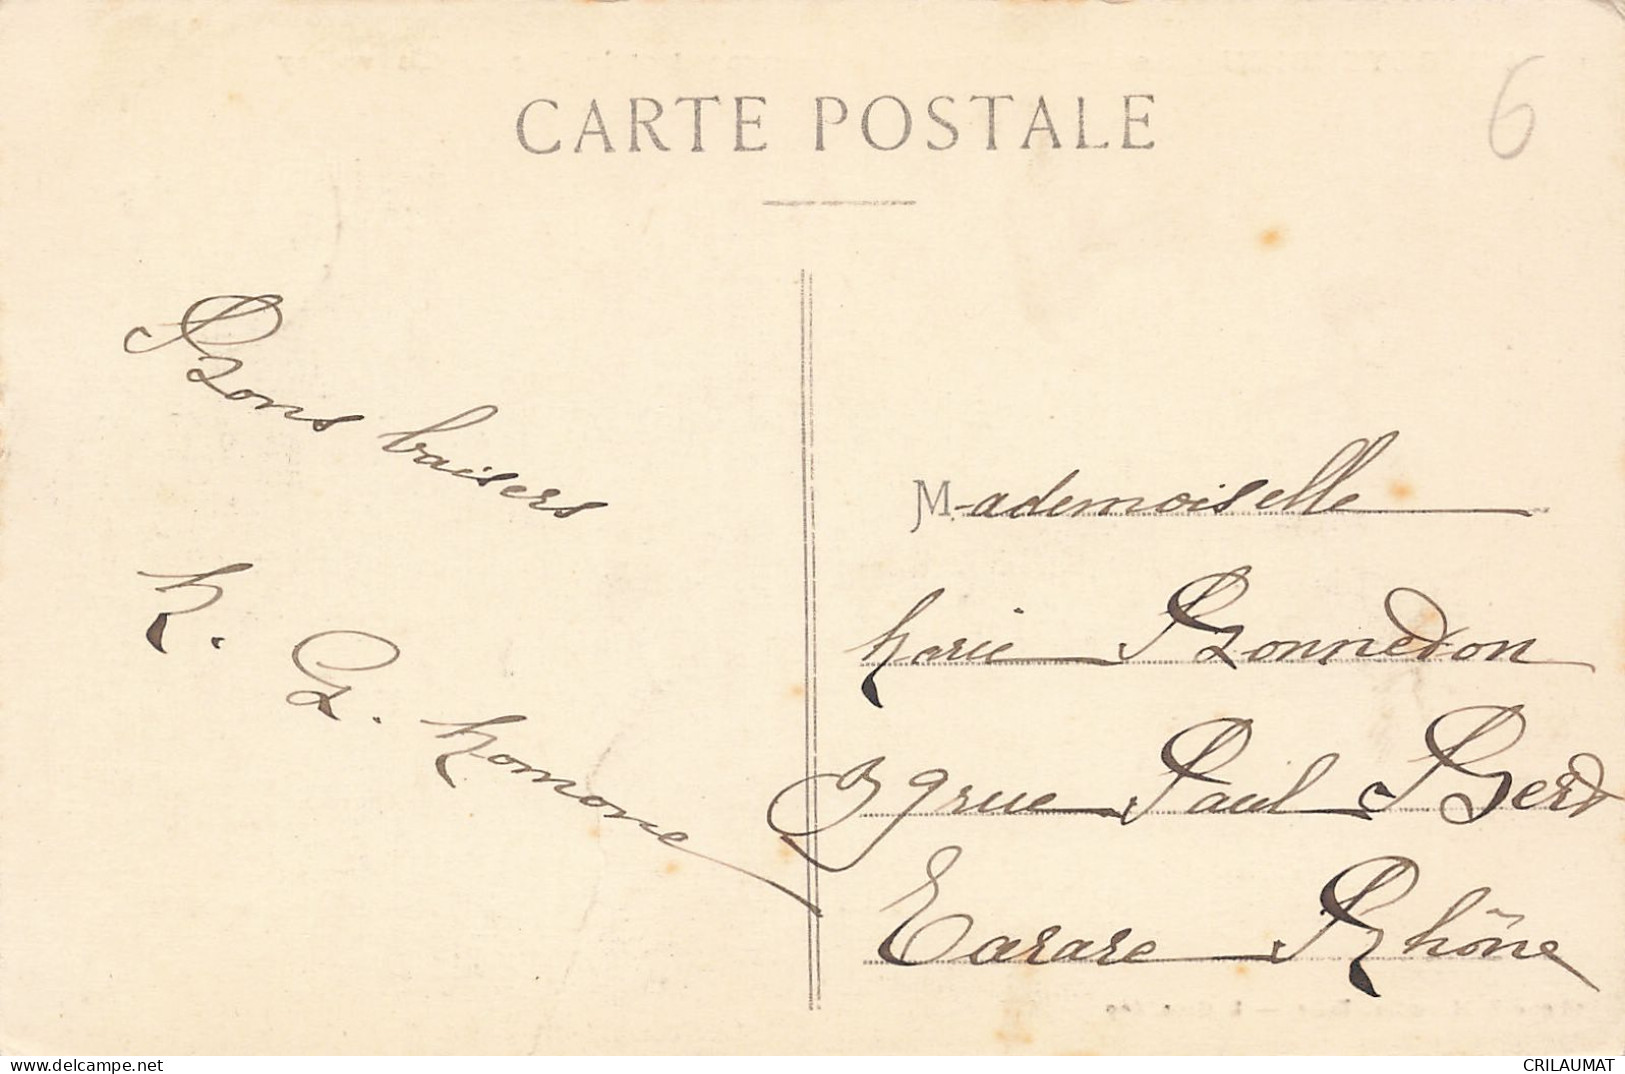 CARTE POSTALE
6
Bons baisers
M. G.
Mademoiselle
Marie Bonnedon
39 rue Paul Bert
Tarare Rhône
CRILAUMAT
www.delcampe.net